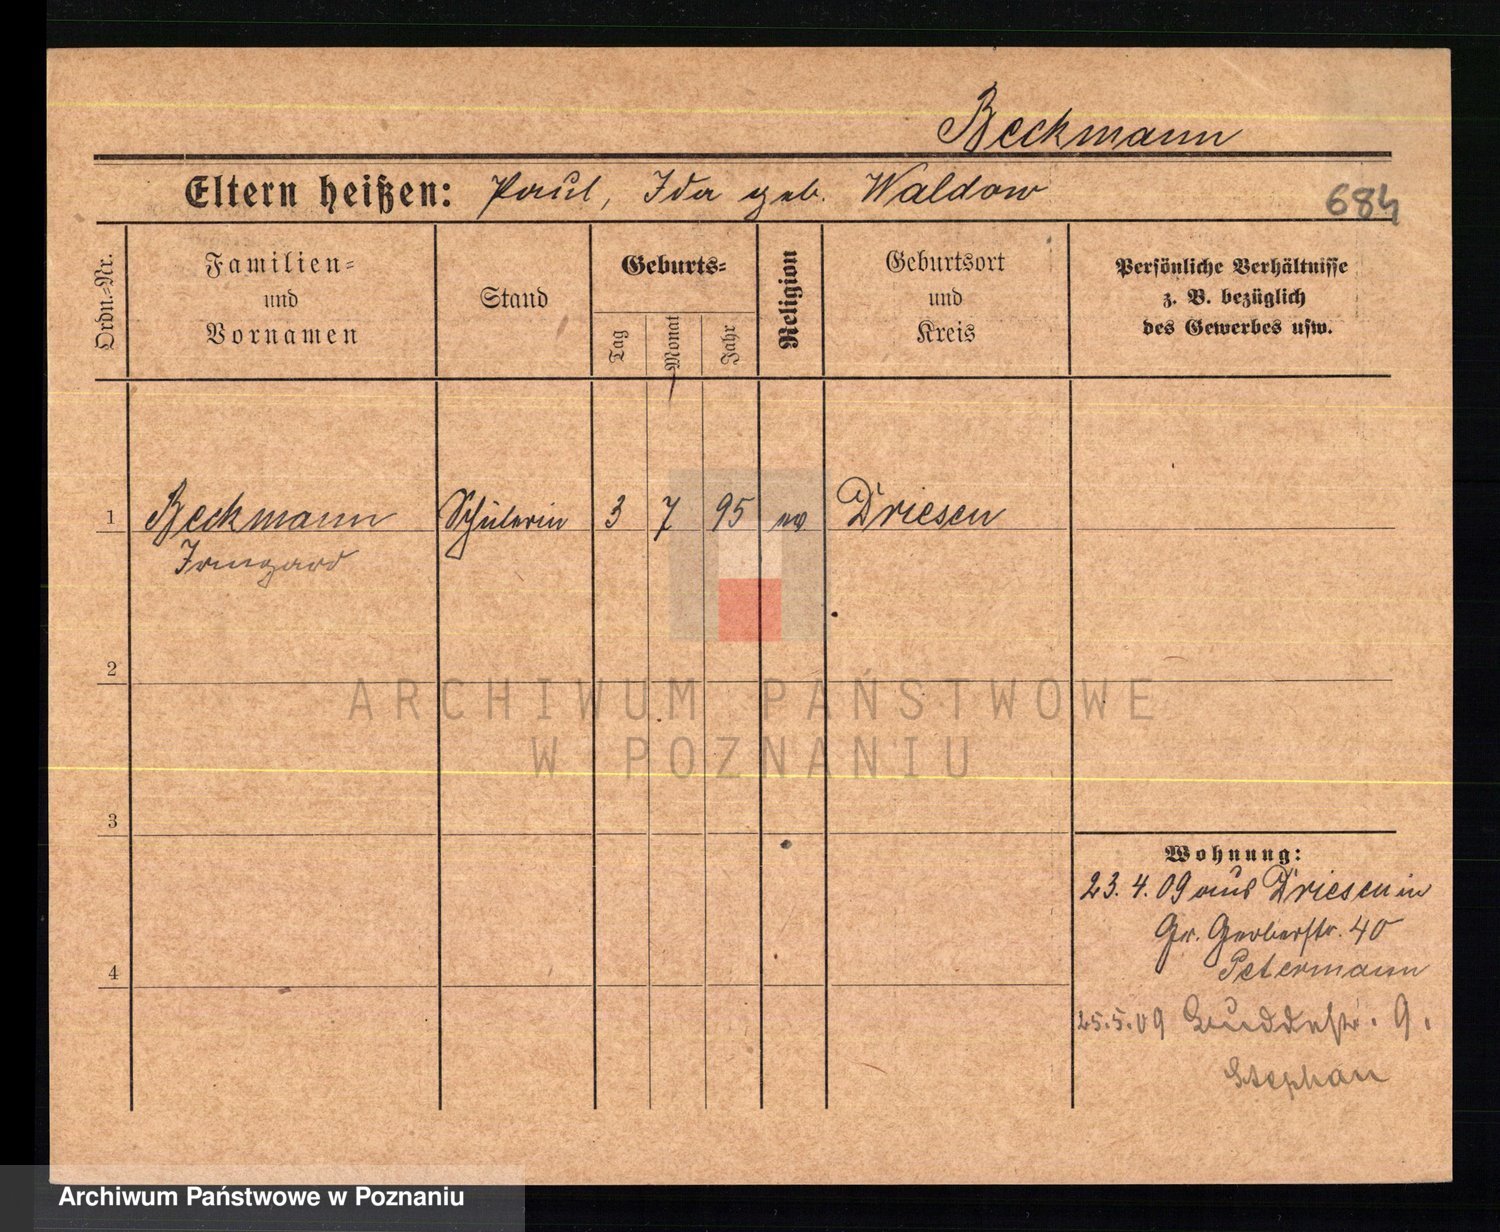 Beckmann
Eltern heißen: Paul, Ida geb. Waldow
684
Ordn.-Nr.
Familien-
und
Vornamen
Stand
Geburts-
Tag
Monat
Jahr
Religion
Geburtsort
und
Kreis
Persönliche Verhältnisse
z. B. bezüglich
des Gewerbes usw.
1 Beckmann Schülerin 3 7 95 ev Driesen
Irmgard
2
ARCHIWUM PAŃSTWOWE
W POZNANIU
3
Wohnung:
23. 4. 09 aus Driesen in
Gr. Gerberstr. 40
Petermann
4
25.5.09 9.
Stephan
Archiwum Państwowe w Poznaniu